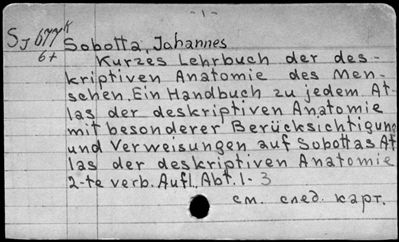 - 1 -
Sj 677 K
6+
Sobotta, Johannes
Kurzes Lehrbuch der des-
kriptiven Anatomie des Men-
schen. Ein Handbuch zu jedem At-
las der deskriptiven Anatomie
mit besonderer Berücksichtigung
und Verweisungen auf Sobottas At
las der deskriptiven Anatomie
2-te verb. Aufl. Abt. 1-3
см. след. карт.